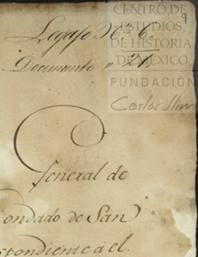 CENTRO DE
ESTUDIOS
DE HISTORIA
DE MÉXICO
FUNDACIÓN
Carlos Slim
9
Legajo Nº 6
Documento " 21
General de
ondado de San
spondiente à el